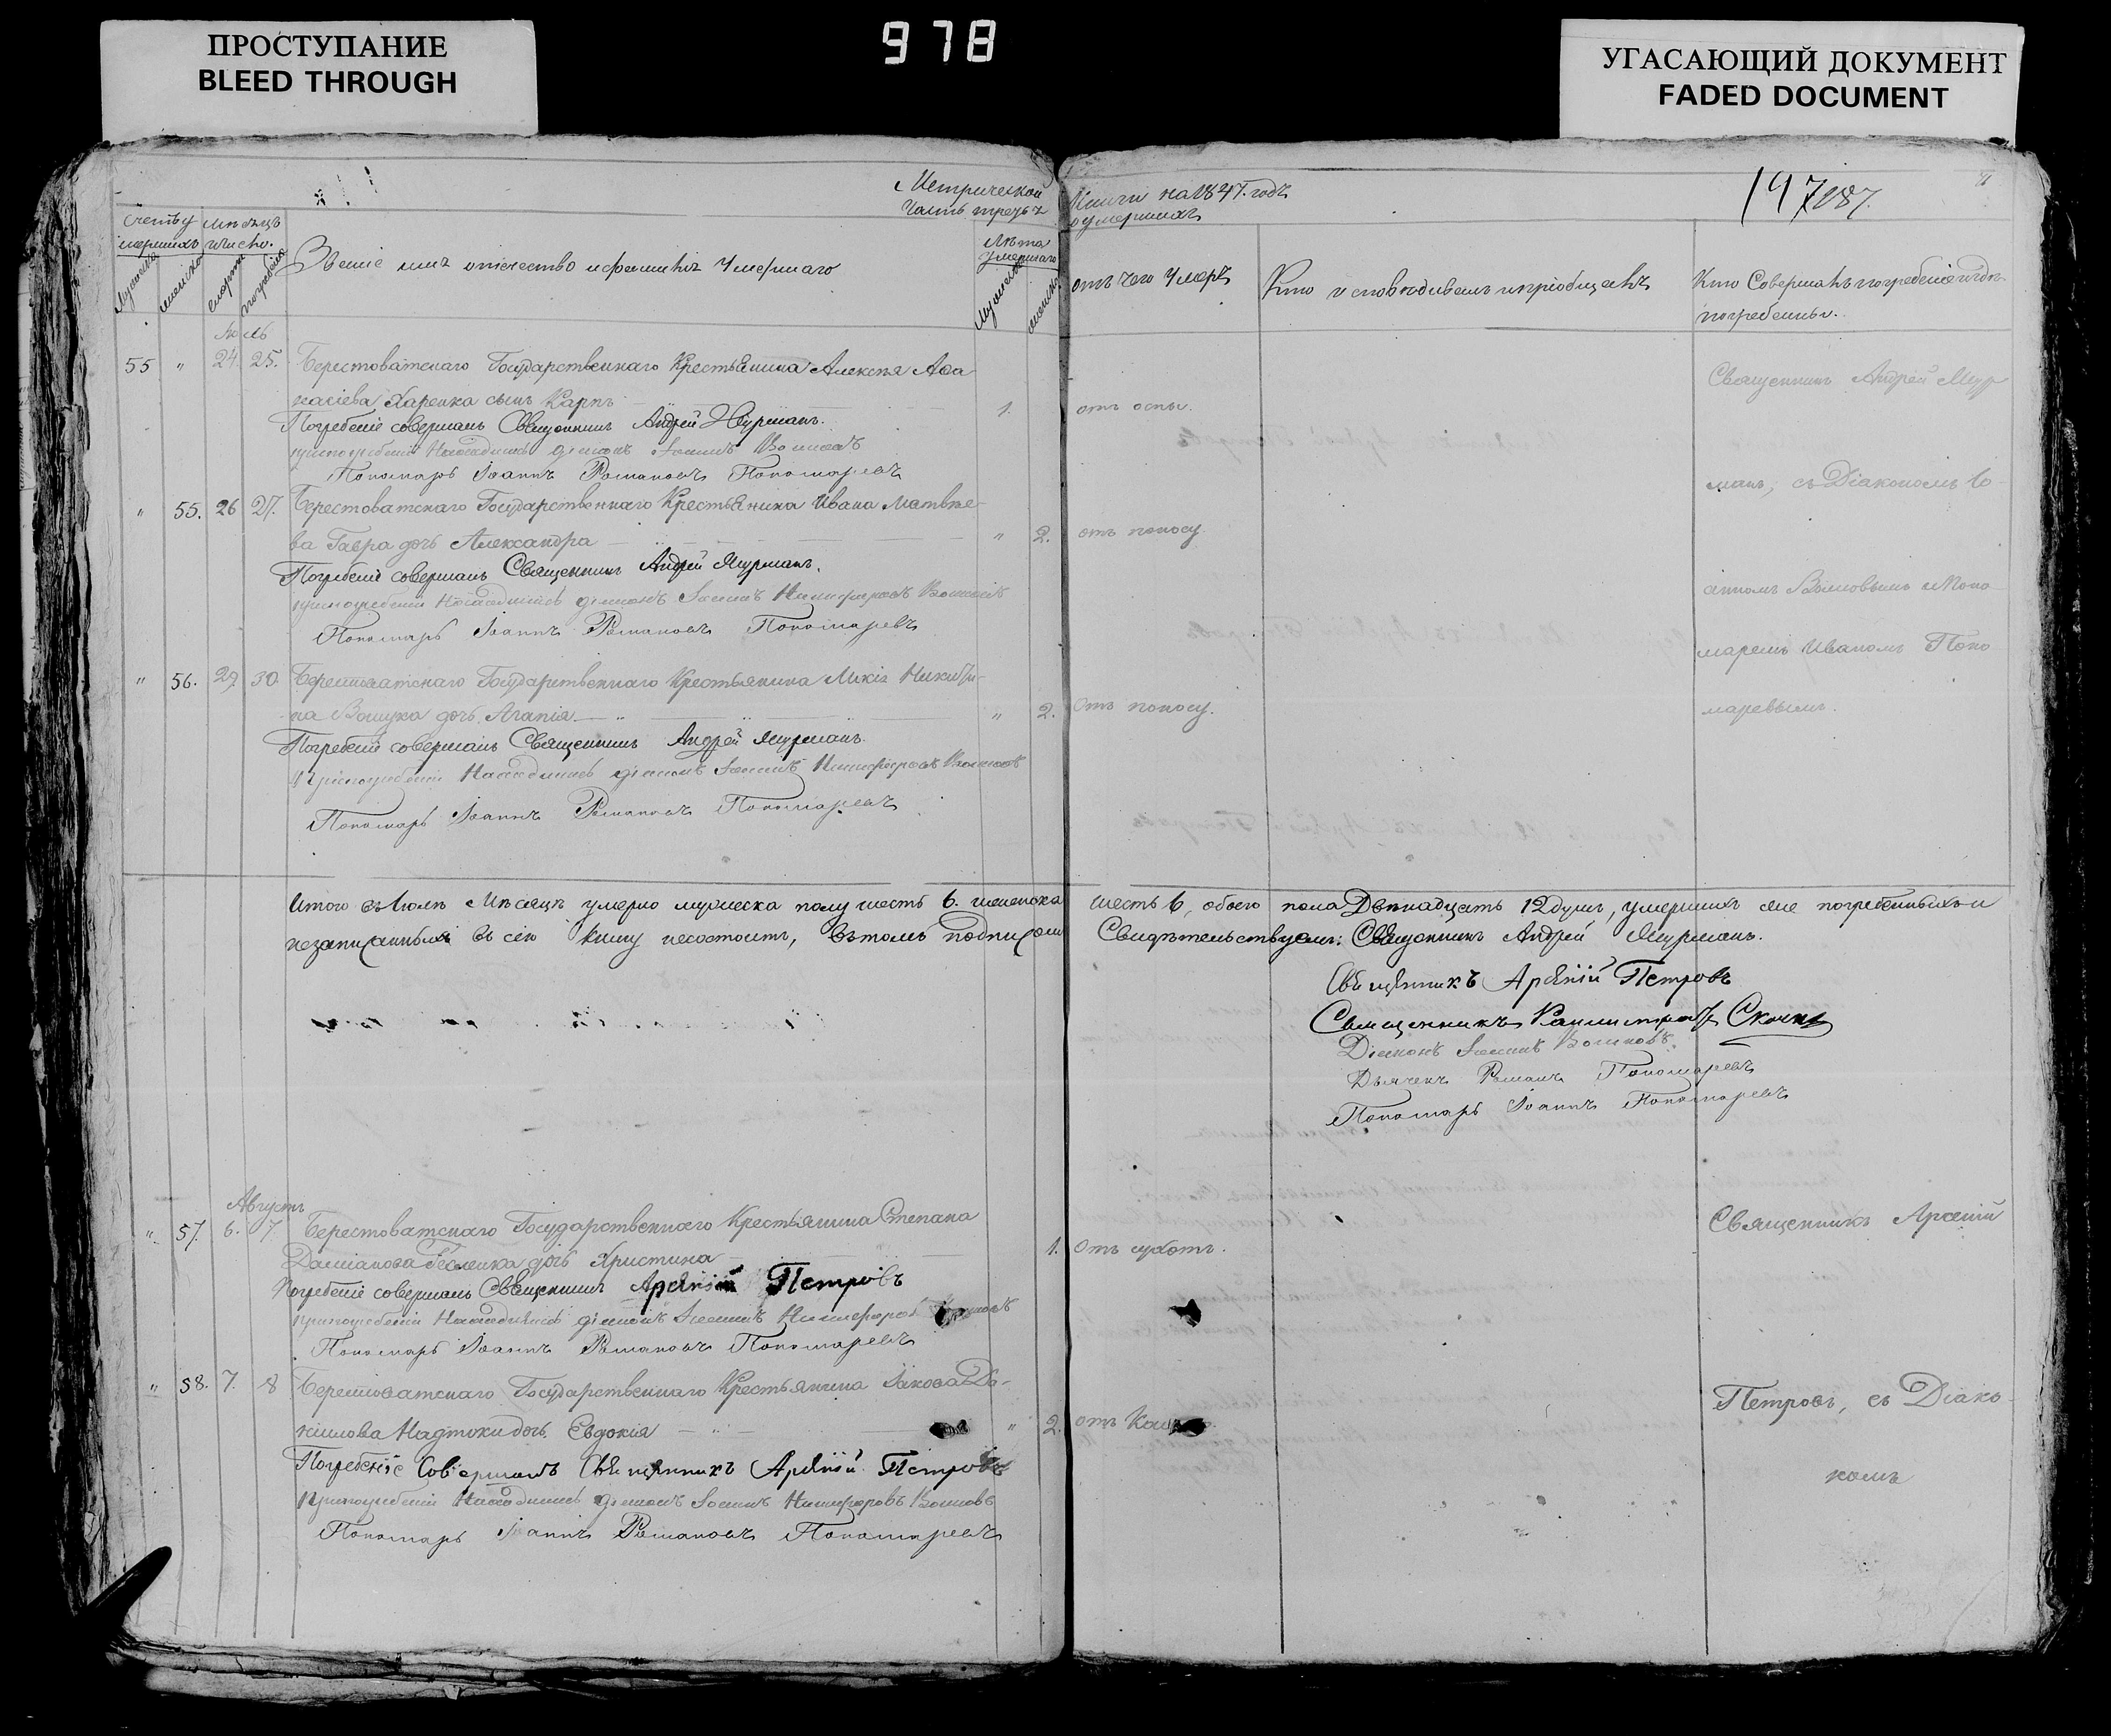 ПРОСТУПАНИЕ
BLEED THROUGH
978
УГАСАЮЩИЙ ДОКУМЕНТ
FADED DOCUMENT
Метрической Книги на 1847. годъ
Часть третья о умершихъ
197
187.
Счетъ умершихъ
Мѣсяцъ и число.
Званіе имя отечество и фамилія Умершаго
Лѣта Умершаго
отъ чего Умеръ
Кто исповѣдывалъ и пріобщалъ
Кто Совершалъ погребеніе и гдѣ погребены.
Іюль
55 " 24. 25. Берестоватскаго Государственнаго Крестьянина Алексѣя Аѳа
насіева Харенка сынъ Карпъ 1. отъ оспы.
Погребеніе совершалъ Священникъ Андрей Мурманъ.
при погребеніи Находились діаконъ Іоаннъ Воиновъ
Пономарь Іоаннъ Романовъ Пономаревъ
" 55. 26 27. Берестоватскаго Государственнаго Крестьянина Ивана Матвѣе-
ва Гавра дочь Александра " 2. отъ поносу.
Погребеніе совершалъ Священникъ Андрей Мурманъ.
при погребеніи Находились діаконъ Іоаннъ Никифоровъ Воиновъ
Пономарь Іоаннъ Романовъ Пономаревъ
" 56. 29. 30. Берестоватскаго Государственнаго Крестьянина Никити-
на дочь Агапія " 2. Отъ поносу.
Погребеніе совершалъ Священникъ Андрей Мурманъ.
При погребеніи Находились діаконъ Іоаннъ Никифоровъ Воиновъ
Пономарь Іоаннъ Романовъ Пономаревъ
Священникъ Андрей Мур
манъ, съ Діакономъ Іо-
анномъ Воиновымъ и Поно
маремъ Иваномъ Поно
маревымъ.
Итого въ Іюлѣ Мѣсяцѣ умерло мужеска полу шесть 6. женска шесть 6, обоего пола Двѣнадцать 12 душъ, умершихъ же погребенныхъ и
незаписанныхъ въ сію книгу несостоитъ, въ томъ подписомъ Свидѣтельствуемъ: Священникъ Андрей Мурманъ.
Священникъ Арсеній Петровъ
Священникъ
Діаконъ Іоаннъ Воиновъ.
Дьячекъ Романъ Пономаревъ
Пономарь Іоаннъ Пономаревъ
Августъ
" 57. 6. 7. Берестоватскаго Государственнаго Крестьянина Степана
Даміанова дочь Христина 1. Отъ сухотъ.
Погребеніе совершалъ Священникъ Арсеній Петровъ
при погребеніи Находились діаконъ Іоаннъ Никифоровъ Воиновъ
Пономарь Іоаннъ Романовъ Пономаревъ
" 58. 7. 8 Берестоватскаго Государственнаго Крестьянина Іакова Да-
ниилова Надтоки дочь Евдокія " 2. отъ
Погребеніе Совершалъ Священникъ Арсеній Петровъ
При погребеніи Находились діаконъ Іоаннъ Никифоровъ Воиновъ
Пономарь Іоаннъ Романовъ Пономаревъ
Священникъ Арсеній
Петровъ, съ Діако-
номъ